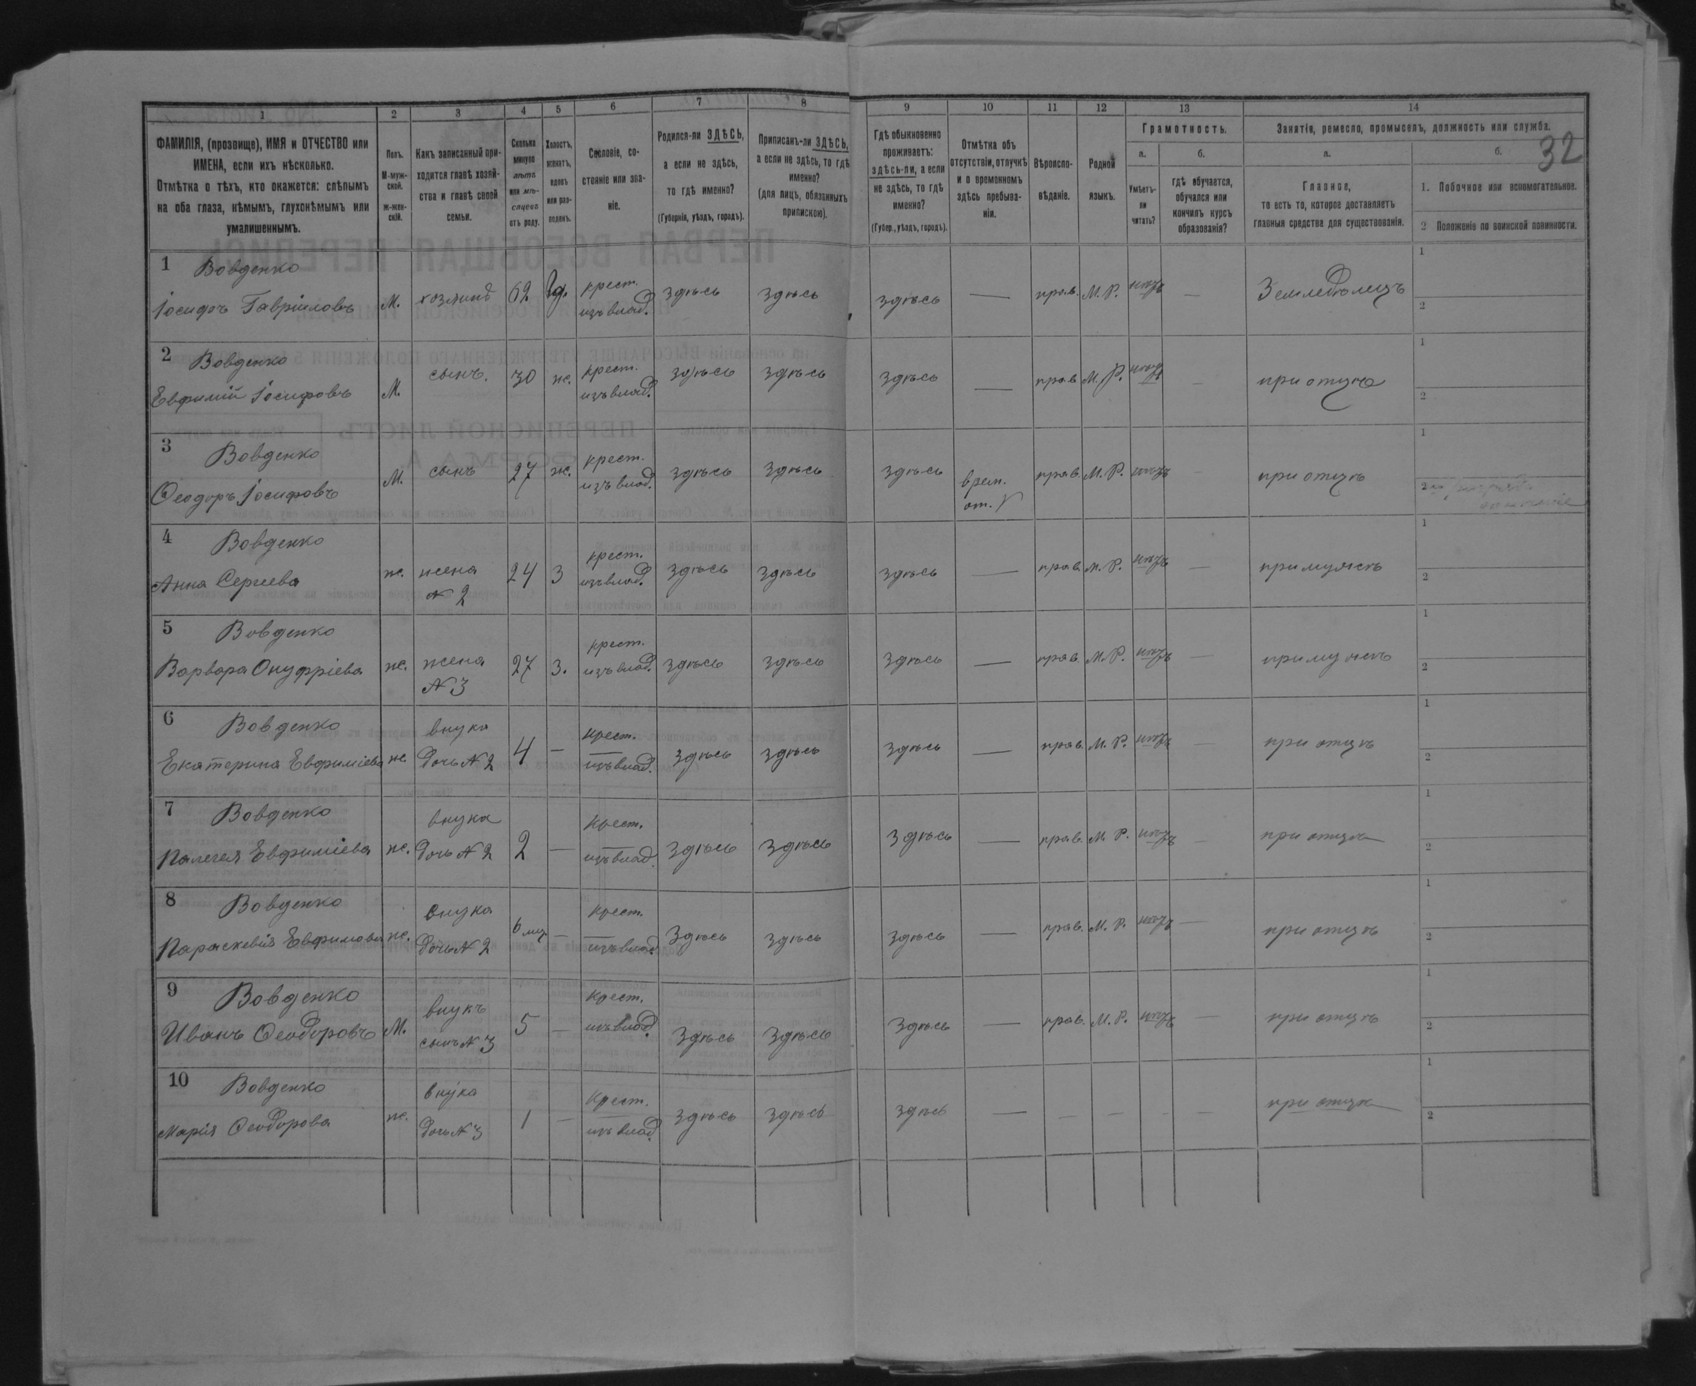 32
1 2 3 4 5 6 7 8 9 10 11 12 13 14
ФАМИЛІЯ, (прозвище), ИМЯ и ОТЧЕСТВО или
ИМЕНА, если ихъ нѣсколько.
Отмѣтка о тѣхъ, кто окажется: слѣпымъ
на оба глаза, нѣмымъ, глухонѣмымъ или
умалишеннымъ.
Полъ.
М-муж-
ской.
ж-жен-
скій.
Какъ записанный при-
ходится главѣ хозяй-
ства и главѣ своей
семьи.
Сколько
минуло
лѣтъ
или мѣ-
сяцевъ
отъ роду.
Холостъ,
женатъ,
вдовъ
или раз-
веденъ.
Сословіе, со-
стояніе или зва-
ніе.
Родился-ли ЗДѢСЬ,
а если не здѣсь,
то гдѣ именно?
(Губернія, уѣздъ, городъ).
Приписанъ-ли ЗДѢСЬ,
а если не здѣсь, то гдѣ
именно?
(для лицъ, обязанныхъ
припиской).
Гдѣ обыкновенно
проживаетъ:
здѣсь-ли, а если
не здѣсь, то гдѣ
именно?
(Губер., уѣздъ, городъ).
Отмѣтка объ
отсутствіи, отлучкѣ
и о временномъ
здѣсь пребыва-
ніи.
Вѣроиспо-
вѣданіе.
Родной
языкъ.
Грамотность.
а. б.
Умѣетъ-
ли
читать?
гдѣ обучается,
обучался или
кончилъ курсъ
образованія?
Занятіе, ремесло, промыселъ, должность или служба.
а. б.
Главное,
то есть то, которое доставляетъ
главныя средства для существованія.
1. Побочное или вспомогательное.
2 Положеніе по воинской повинности.
1 Вовденко
Іосифъ Гавріиловъ М. хозяинъ 62 вд. крест. изъ влад. здѣсь здѣсь здѣсь — прав. М. Р. нѣтъ — Земледѣлецъ 1 2
2 Вовденко
Евфимій Іосифовъ М. сынъ. 30 ж. крест. изъ влад. здѣсь здѣсь здѣсь — прав. М. Р. нѣтъ — при отцѣ 1 2
3 Вовденко
Ѳеодоръ Іосифовъ М. сынъ 27 ж. крест. изъ влад. здѣсь здѣсь здѣсь врем. от. прав. М. Р. нѣтъ — при отцѣ 1 2
4 Вовденко
Анна Сергеева ж. жена № 2 24 З крест. изъ влад. здѣсь здѣсь здѣсь — прав. М. Р. нѣтъ — при мужѣ 1 2
5 Вовденко
Варвара Онуфріева ж. жена № 3 27 З. крест. изъ влад. здѣсь здѣсь здѣсь — прав. М. Р. нѣтъ — при мужѣ 1 2
6 Вовденко
Екатерина Евфиміева ж. внука дочь № 2 4 — крест. изъ влад. здѣсь здѣсь здѣсь — прав. М. Р. нѣтъ — при отцѣ 1 2
7 Вовденко
Палагея Евфиміева ж. внука дочь № 2 2 — крест. изъ влад. здѣсь здѣсь здѣсь — прав. М. Р. нѣтъ — при отцѣ 1 2
8 Вовденко
Параскевія Евфимова ж. внука дочь № 2 6 мц — крест. изъ влад. здѣсь здѣсь здѣсь — прав. М. Р. нѣтъ — при отцѣ 1 2
9 Вовденко
Иванъ Ѳеодоровъ М. внукъ сынъ № 3 5 — крест. изъ влад. здѣсь здѣсь здѣсь — прав. М. Р. нѣтъ — при отцѣ 1 2
10 Вовденко
Марія Ѳеодорова ж. внука дочь № 3 1 — крест. изъ влад. здѣсь здѣсь здѣсь — — — — — при отцѣ 1 2